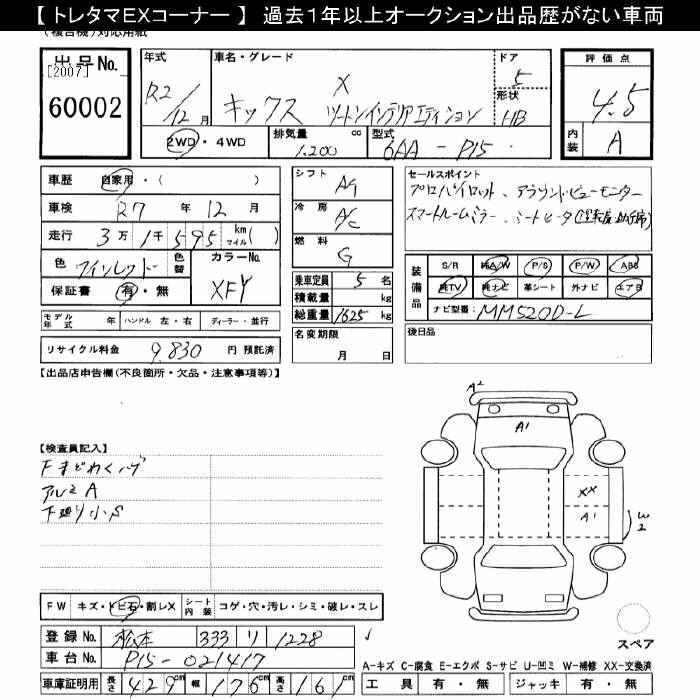 【 トレタマEXコーナー 】 過去1年以上オークション出品歴がない車両
(複合機)対応用紙
出品No.
[2007]
60002
年式
R2/12月
車名・グレード
キックス X ツートンインテリアエディション
ドア
5
形状
HB
評価点
4.5
内装
A
2WD・4WD
排気量
1.200 cc
型式
6AA - P15
車歴 自家用・( )
車検 R7年12月
走行 3万1千595 km マイル( )
色
ワインレッド
色替
カラーNo.
XFY
保証書 有・無
モデル年式 年 ハンドル 左・右 ディーラー・並行
リサイクル料金 9,830 円 預託済
シフト
AT
冷房
A/C
燃料
G
乗車定員 5 名
積載量 kg
総重量 1625 kg
名変期限
月 日
セールスポイント
プロパイロット、アラウンドビューモニター
スマートルームミラー、シートヒーター(運転席、助手席)
装備品
S/R 純A/W P/S P/W ABS
純TV 純ナビ 革シート 外ナビ エアB
ナビ型番: MM520D-L
後日品
【出品店申告欄(不良箇所・欠品・注意事項等)】
【検査員記入】
Fまどわくハゲ
アルミA
下廻り小S
A2
A1
XX
A1
W2
スペア
FW キズ・トビ石・割レX シート内装 コゲ・穴・汚レ・シミ・破レ・スレ
登録No. 松本 333 リ 1228
車台No. P15-021417
車庫証明用 長さ 429cm 幅 176cm 高さ 161cm
A-キズ C-腐食 E-エクボ S-サビ U-凹ミ W-補修 XX-交換済
工具 有・無 ジャッキ 有・無